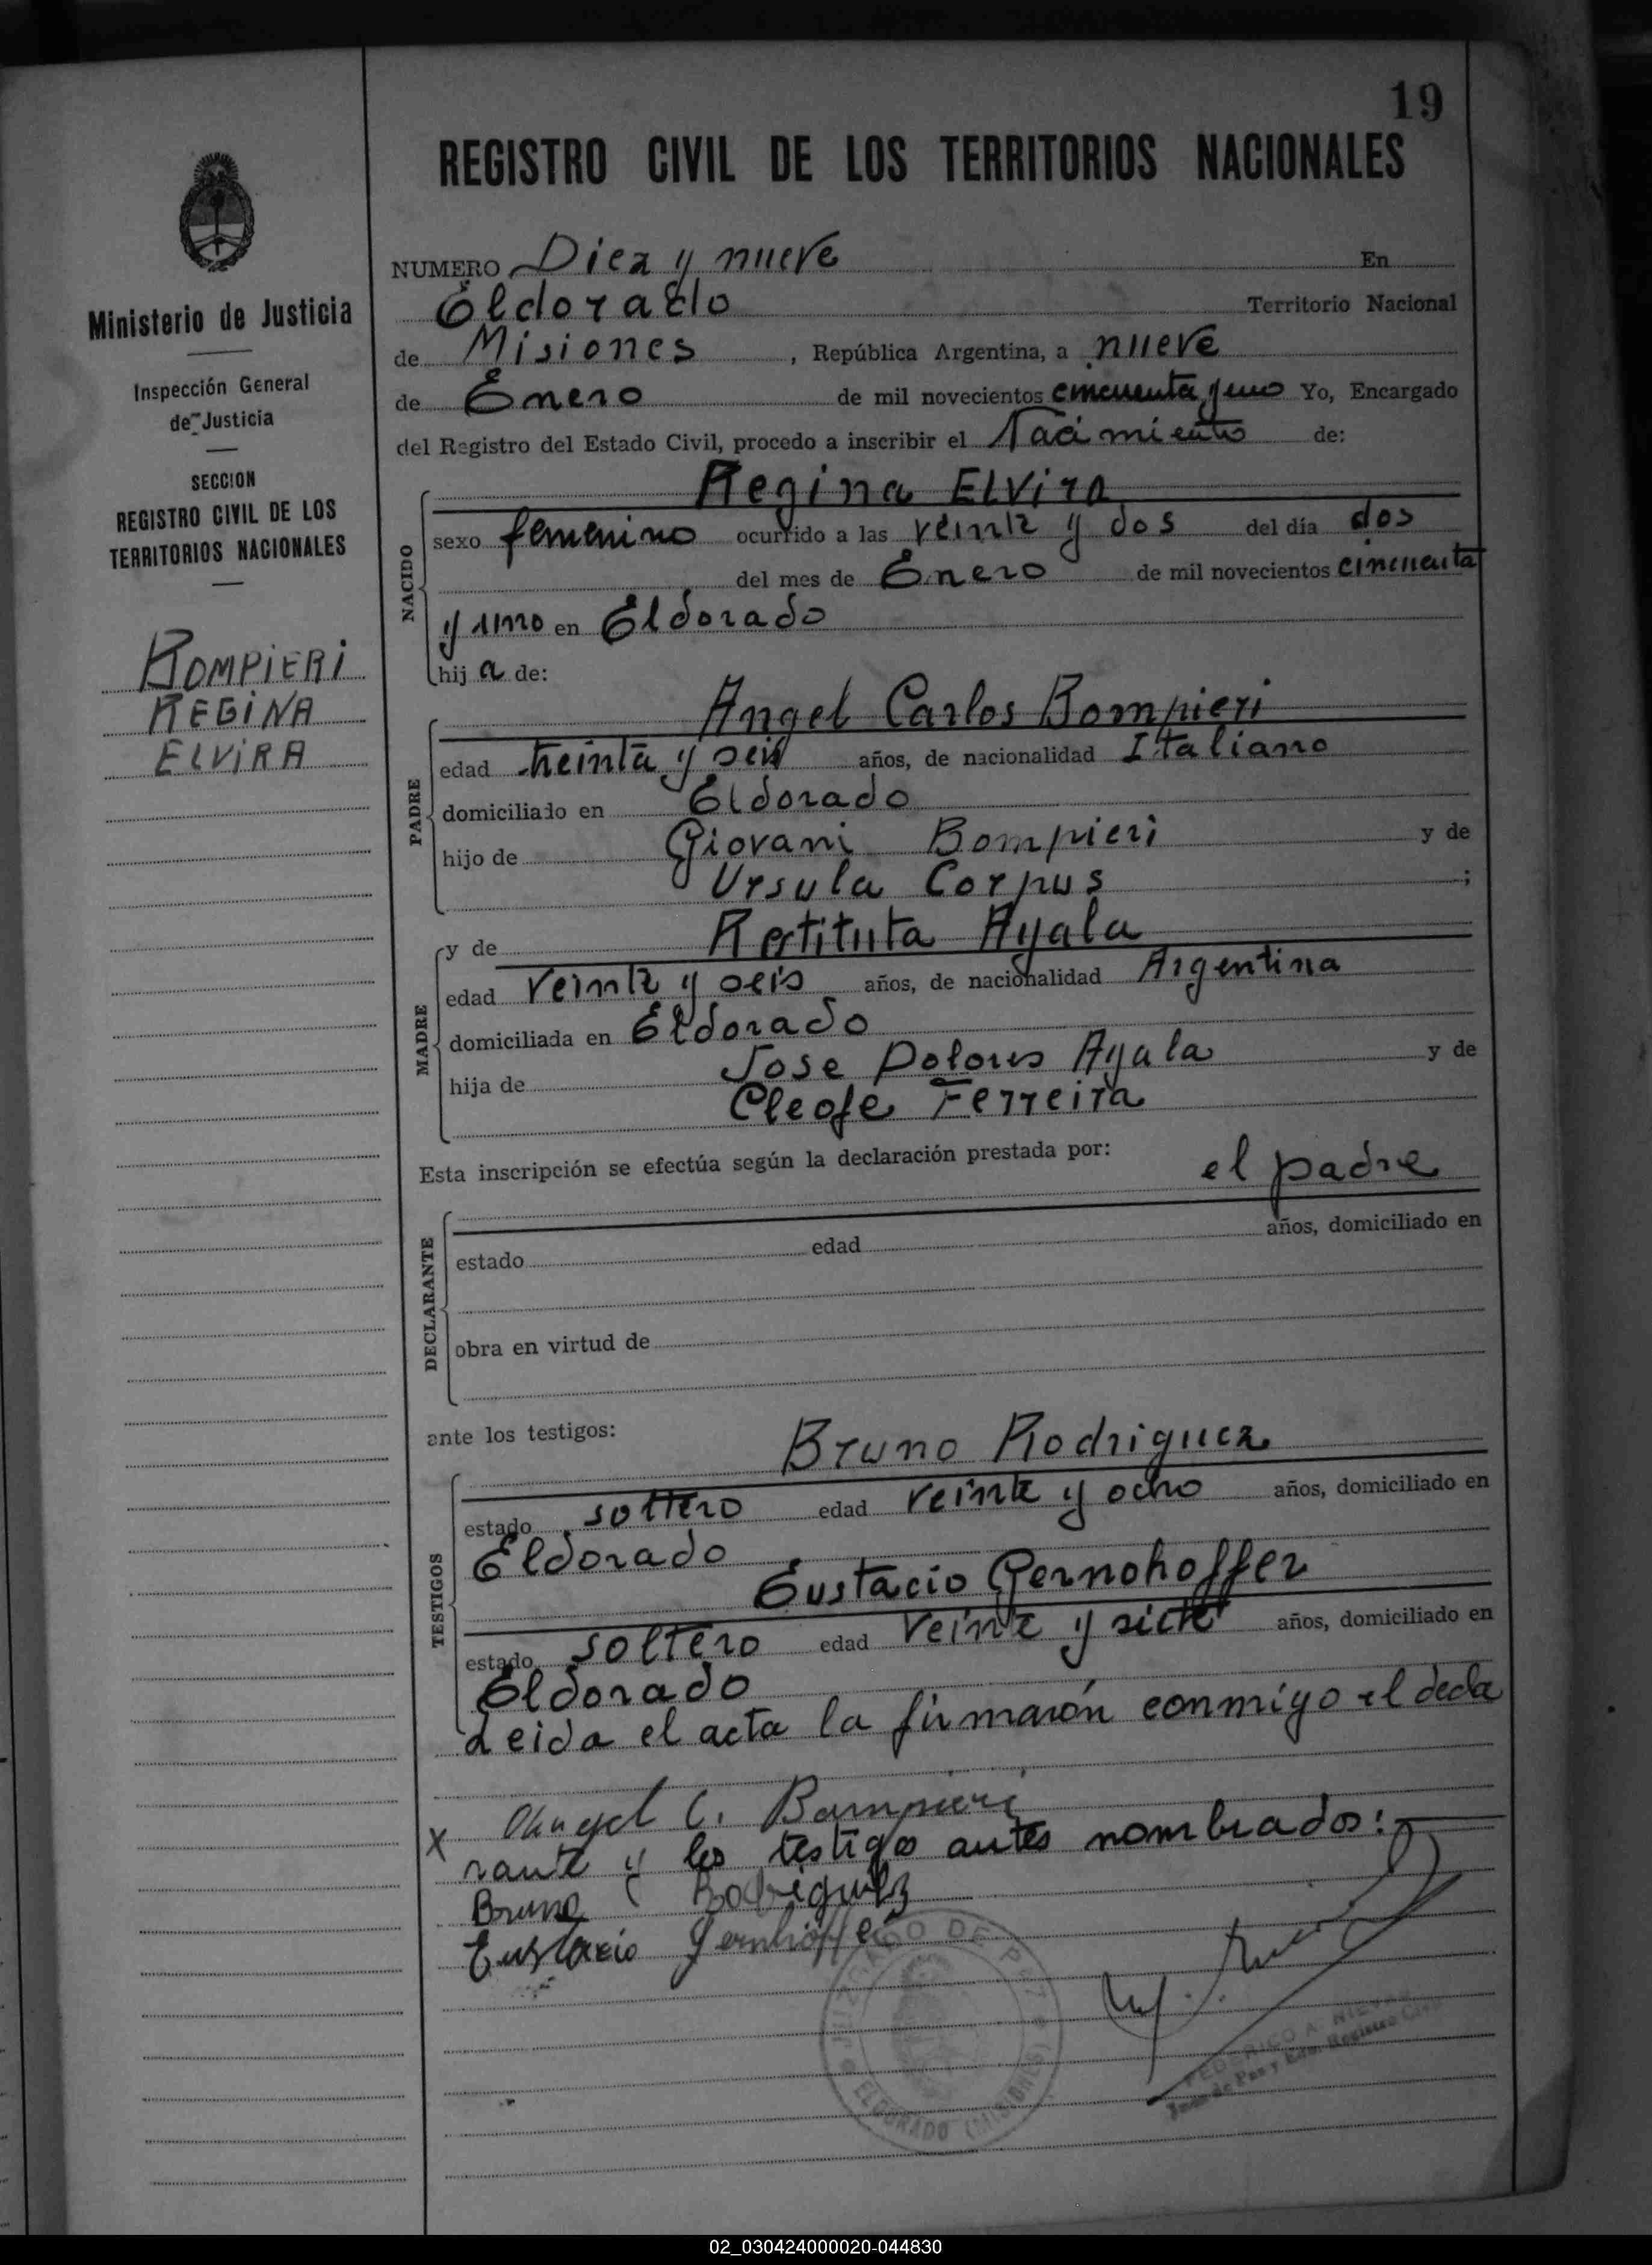 19
REGISTRO CIVIL DE LOS TERRITORIOS NACIONALES
Ministerio de Justicia
Inspección General
de Justicia
SECCION
REGISTRO CIVIL DE LOS
TERRITORIOS NACIONALES
BOMPIERI
REGINA
ELVIRA
NUMERO Diez y nueve En
Eldorado Territorio Nacional
de Misiones, República Argentina, a nueve
de Enero de mil novecientos cincuenta y uno Yo, Encargado
del Registro del Estado Civil, procedo a inscribir el Nacimiento de:
NACIDO
Regina Elvira
sexo femenino ocurrido a las veinte y dos del día dos
del mes de Enero de mil novecientos cincuenta
y uno en Eldorado
hija de:
PADRE
Angel Carlos Bompieri
edad treinta y seis años, de nacionalidad Italiano
domiciliado en Eldorado
hijo de Giovani Bompieri y de
Ursula Corpus;
MADRE
y de Restituta Ayala
edad veinte y seis años, de nacionalidad Argentina
domiciliada en Eldorado
hija de Jose Dolores Ayala y de
Cleofe Ferreira
Esta inscripción se efectúa según la declaración prestada por: el padre
DECLARANTE
estado edad años, domiciliado en
obra en virtud de
ante los testigos:
TESTIGOS
Bruno Rodriguez
estado soltero edad veinte y ocho años, domiciliado en
Eldorado
Eustacio Gernohoffer
estado soltero edad veinte y siete años, domiciliado en
Eldorado
Leida el acta la firmarón conmigo el decla
X Angel C. Bompieri
rante y los testigo antes nombrados:
Bruno Rodriguez
Eustacio
JUZGADO DE PAZ
ELDORADO (MISIONES)
FEDERICO A. NIEVAS
Juez de Paz y Enc. Registro Civil
02_030424000020-044830